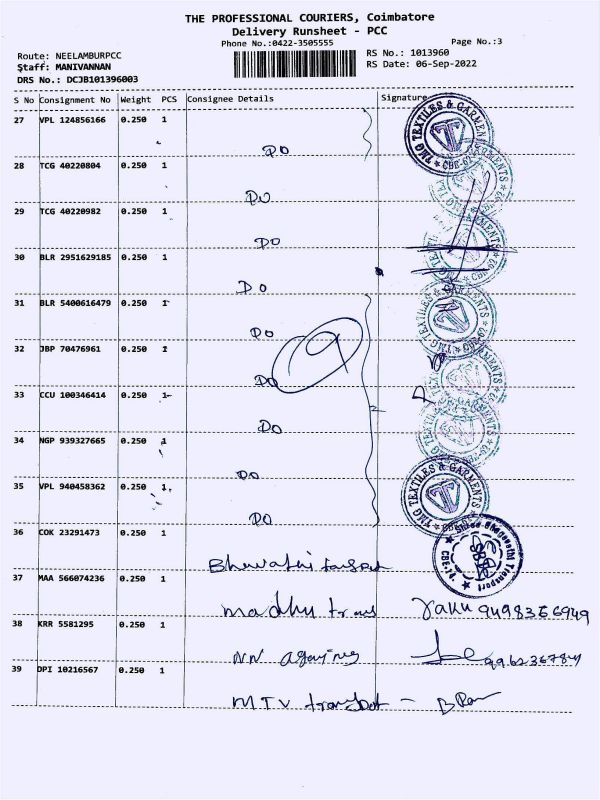 THE PROFESSIONAL COURIERS, Coimbatore
Delivery Runsheet - PCC
Phone No.:0422-3505555
Page No.:3
Route: NEELAMBURPCC
RS No.: 1013960
Staff: MANIVANNAN
RS Date: 06-Sep-2022
DRS No.: DCJB101396003
S No Consignment No Weight PCS Consignee Details Signature
27 VPL 124856166 0.250 1
DO
TMG TEXTILES & GARMENTS
28 TCG 40220804 0.250 1
DO
29 TCG 40220982 0.250 1
DO
30 BLR 2951629185 0.250 1
DO
31 BLR 5400616479 0.250 1
DO
9
32 JBP 70476961 0.250 1
DO
33 CCU 100346414 0.250 1
DO
34 NGP 939327665 0.250 1
DO
35 VPL 940458362 0.250 1
DO
TMG TEXTILES & GARMENTS
36 COK 23291473 0.250 1
37 MAA 566074236 0.250 1
madhu trans
38 KRR 5581295 0.250 1
NN
39 DPI 10216567 0.250 1
MTV